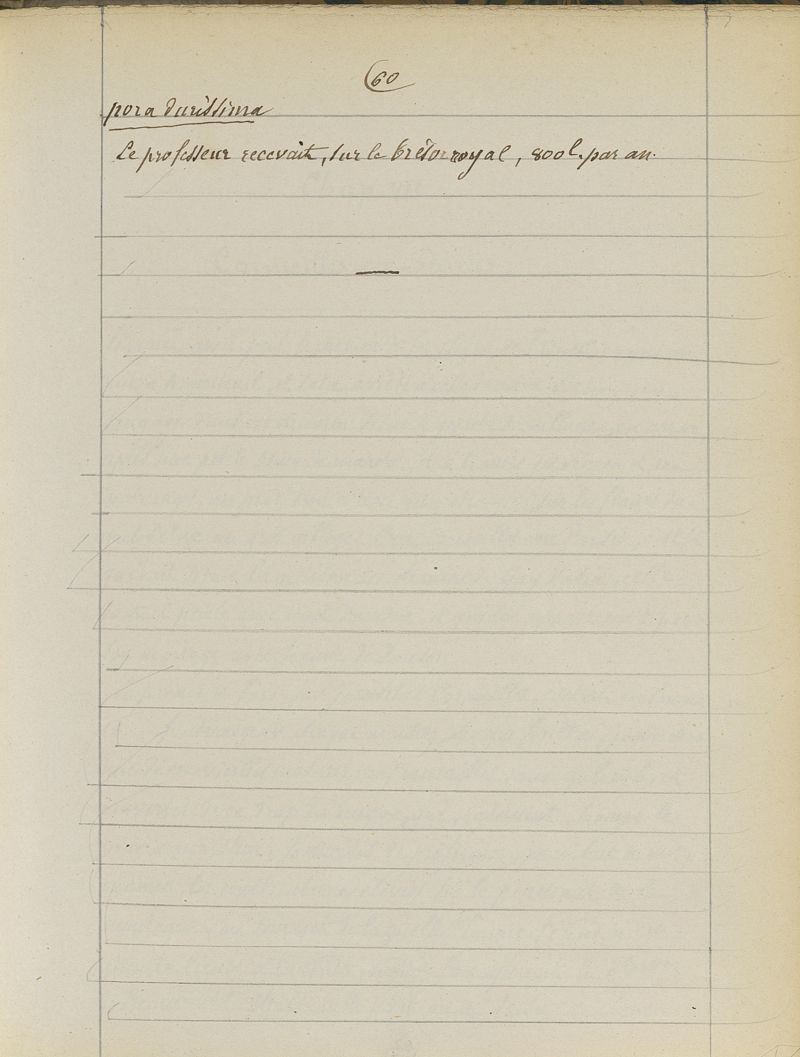 60
pora durissima
Le professeur recevait, sur le trésor royal, 800 l. par an.